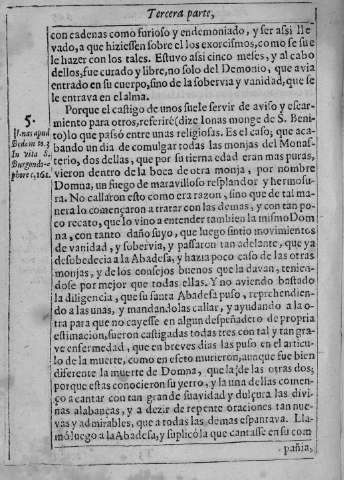 Tercera parte,
con cadenas como furioso y endemoniado, y ser assi lle
vado, a que hiziessen sobre el los exorcismos, como se sue
le hazer con los tales. Estuvo assi cinco meses, y al cabo
dellos, fue curado y libre, no solo del Demonio, que avia
entrado en su cuerpo, sino de la sobervia y vanidad, que se
le entrava en el alma.
Porque el castigo de unos suele servir de aviso y escar
miento para otros, referirè (dize Ionas monge de S. Beni
to) lo que passó entre unas religiosas. Es el caso; que aca
bando un dia de comulgar todas las monjas del Monas-
terio, dos dellas, que por su tierna edad eran mas puras,
vieron dentro de la boca de otra monja, por nombre
Domna, un fuego de maravilloso resplandor y hermosu
ra. No callaron esto como era razon, sino que de tal ma
nera lo començaron a tratar con las demas, y con tan po-
co recato, que lo vino a entender tambien la mismo Dom
na, con tanto daño suyo, que luego sintio movimientos
de vanidad, y sobervia, y passaron tan adelante, que ya
desobedecia a la Abadesa, y hazia poco caso de las otras
monjas, y de los consejos buenos que la davan, tenien-
dose por mejor que todas ellas. Y no aviendo bastado
la diligencia, que su santa Abadesa puso, reprehendien-
do a las unas, y mandandolas callar, y ayudando a la o-
tra para que no cayesse en algun despeñadero de propria
estimacion, fueron castigadas todas tres con tal y tan gra-
ve enfermedad, que en breves dias las puso en el articu-
lo de la muerte, como en efeto murieron, aunque fue bien
diferente la muerte de Domna, que la de las otras dos;
porque estas conocieron su yerro, y la una dellas comen-
ço a cantar con tan grande suavidad y dulçura las divi-
nas alabanças, y a dezir de repente oraciones tan nue-
vas y admirables, que a todas las demas espantava. Lla-
mó luego a la Abadesa, y suplicó la que cantasse en su com
pañia,
5.
Ionas apud
Bedam to. 3
In vita S.
Burgundo-
phore c. 261.